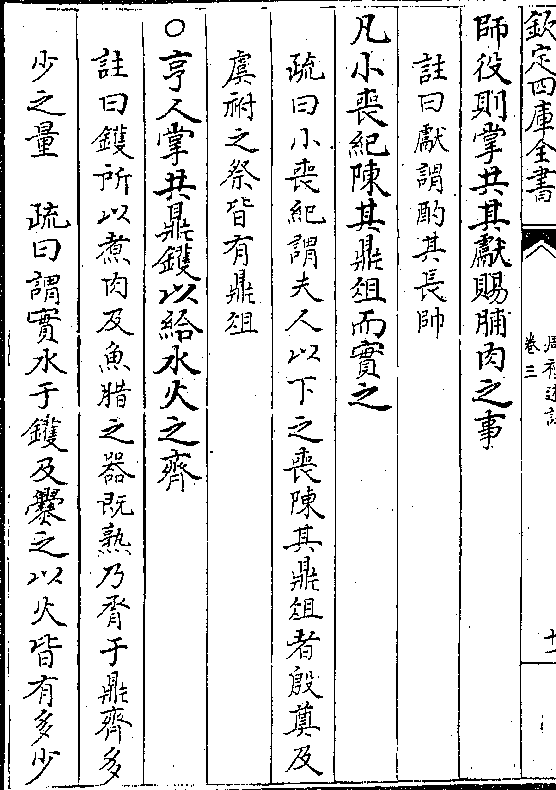 欽定四庫全書
周禮述註
卷三
師役則掌共其獻賜脯肉之事
註曰獻謂酌其長帥
凡小喪紀陳其鼎俎而實之
疏曰小喪紀謂夫人以下之喪陳其鼎俎者殷奠及
虞祔之祭皆有鼎俎
○亨人掌共鼎鑊以給水火之齊
註曰鑊所以煮肉及魚腊之器既熟乃脀于鼎齊多
少之量　疏曰謂實水于鑊及爨之以火皆有多少